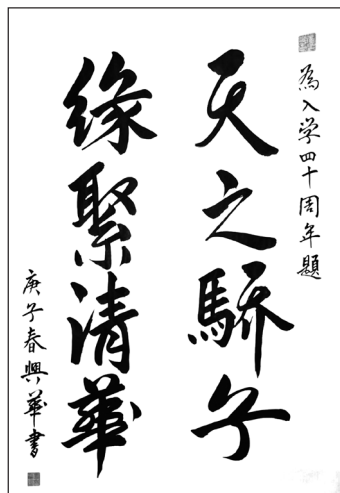 為入学四十周年題
天之驕子
缘繫清華
庚子春興華書